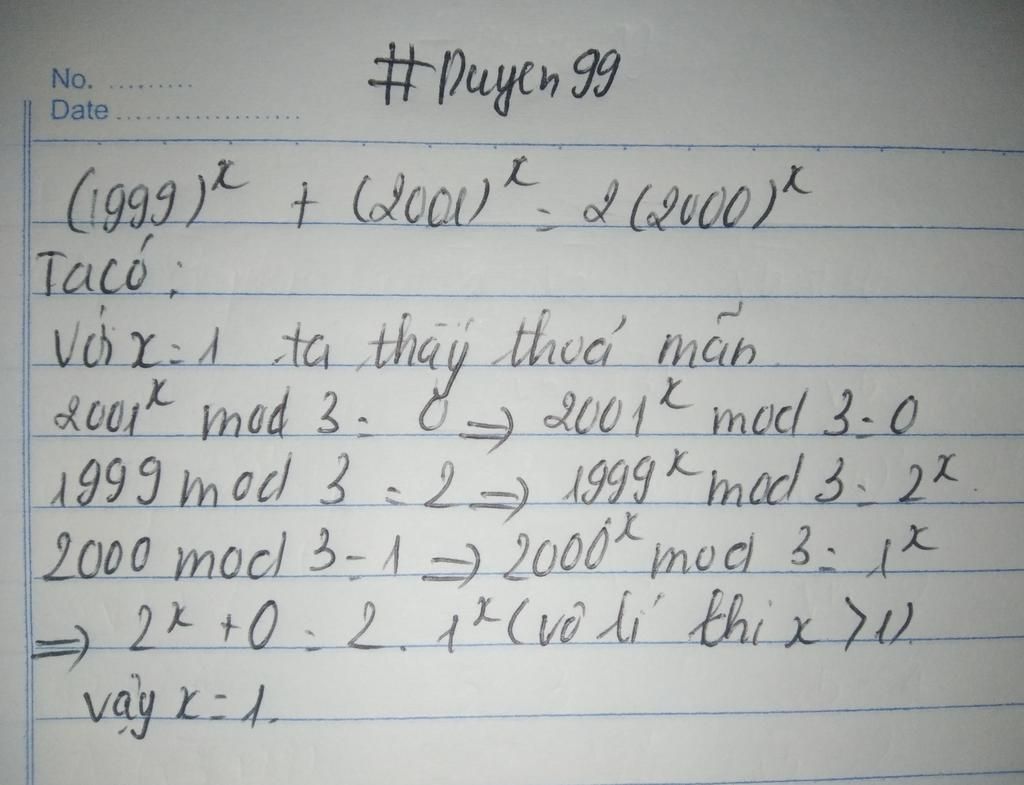 #Duyen99
No. .........
Date ......................
(1999)^x + (2001)^x = 2(2000)^x
Ta có:
Với x = 1 ta thấy thoả mãn
2001^x mod 3 = 0 => 2001^x mod 3 = 0
1999 mod 3 = 2 => 1999^x mod 3 = 2^x.
2000 mod 3 = 1 => 2000^x mod 3 = 1^x
=> 2^x + 0 = 2. 1^x (vô lí thi x > 1)
vậy x = 1.